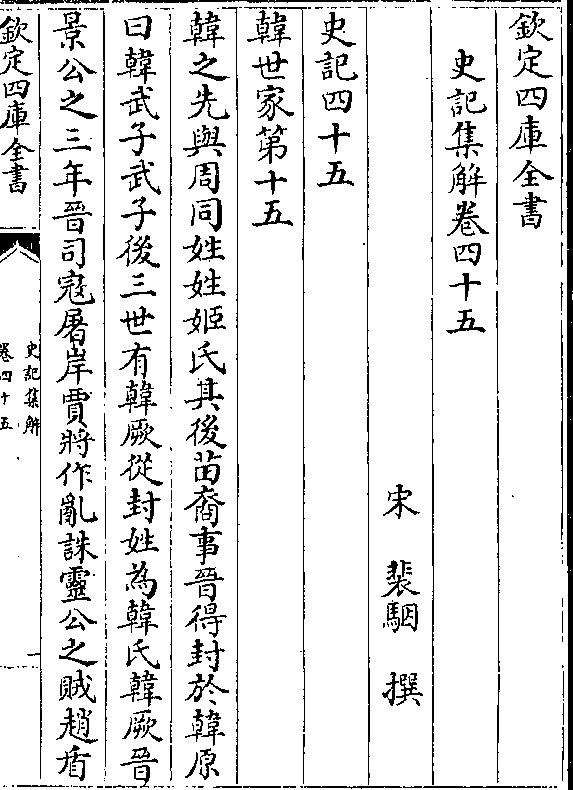 欽定四庫全書
史記集解卷四十五
宋 裴駰 撰
史記四十五
韓世家第十五
韓之先與周同姓姓姬氏其後苗裔事晉得封於韓原
曰韓武子武子後三世有韓厥從封姓為韓氏韓厥晉
景公之三年晉司寇屠岸賈將作亂誅靈公之賊趙盾
欽定四庫全書
史記集解
卷四十五
一